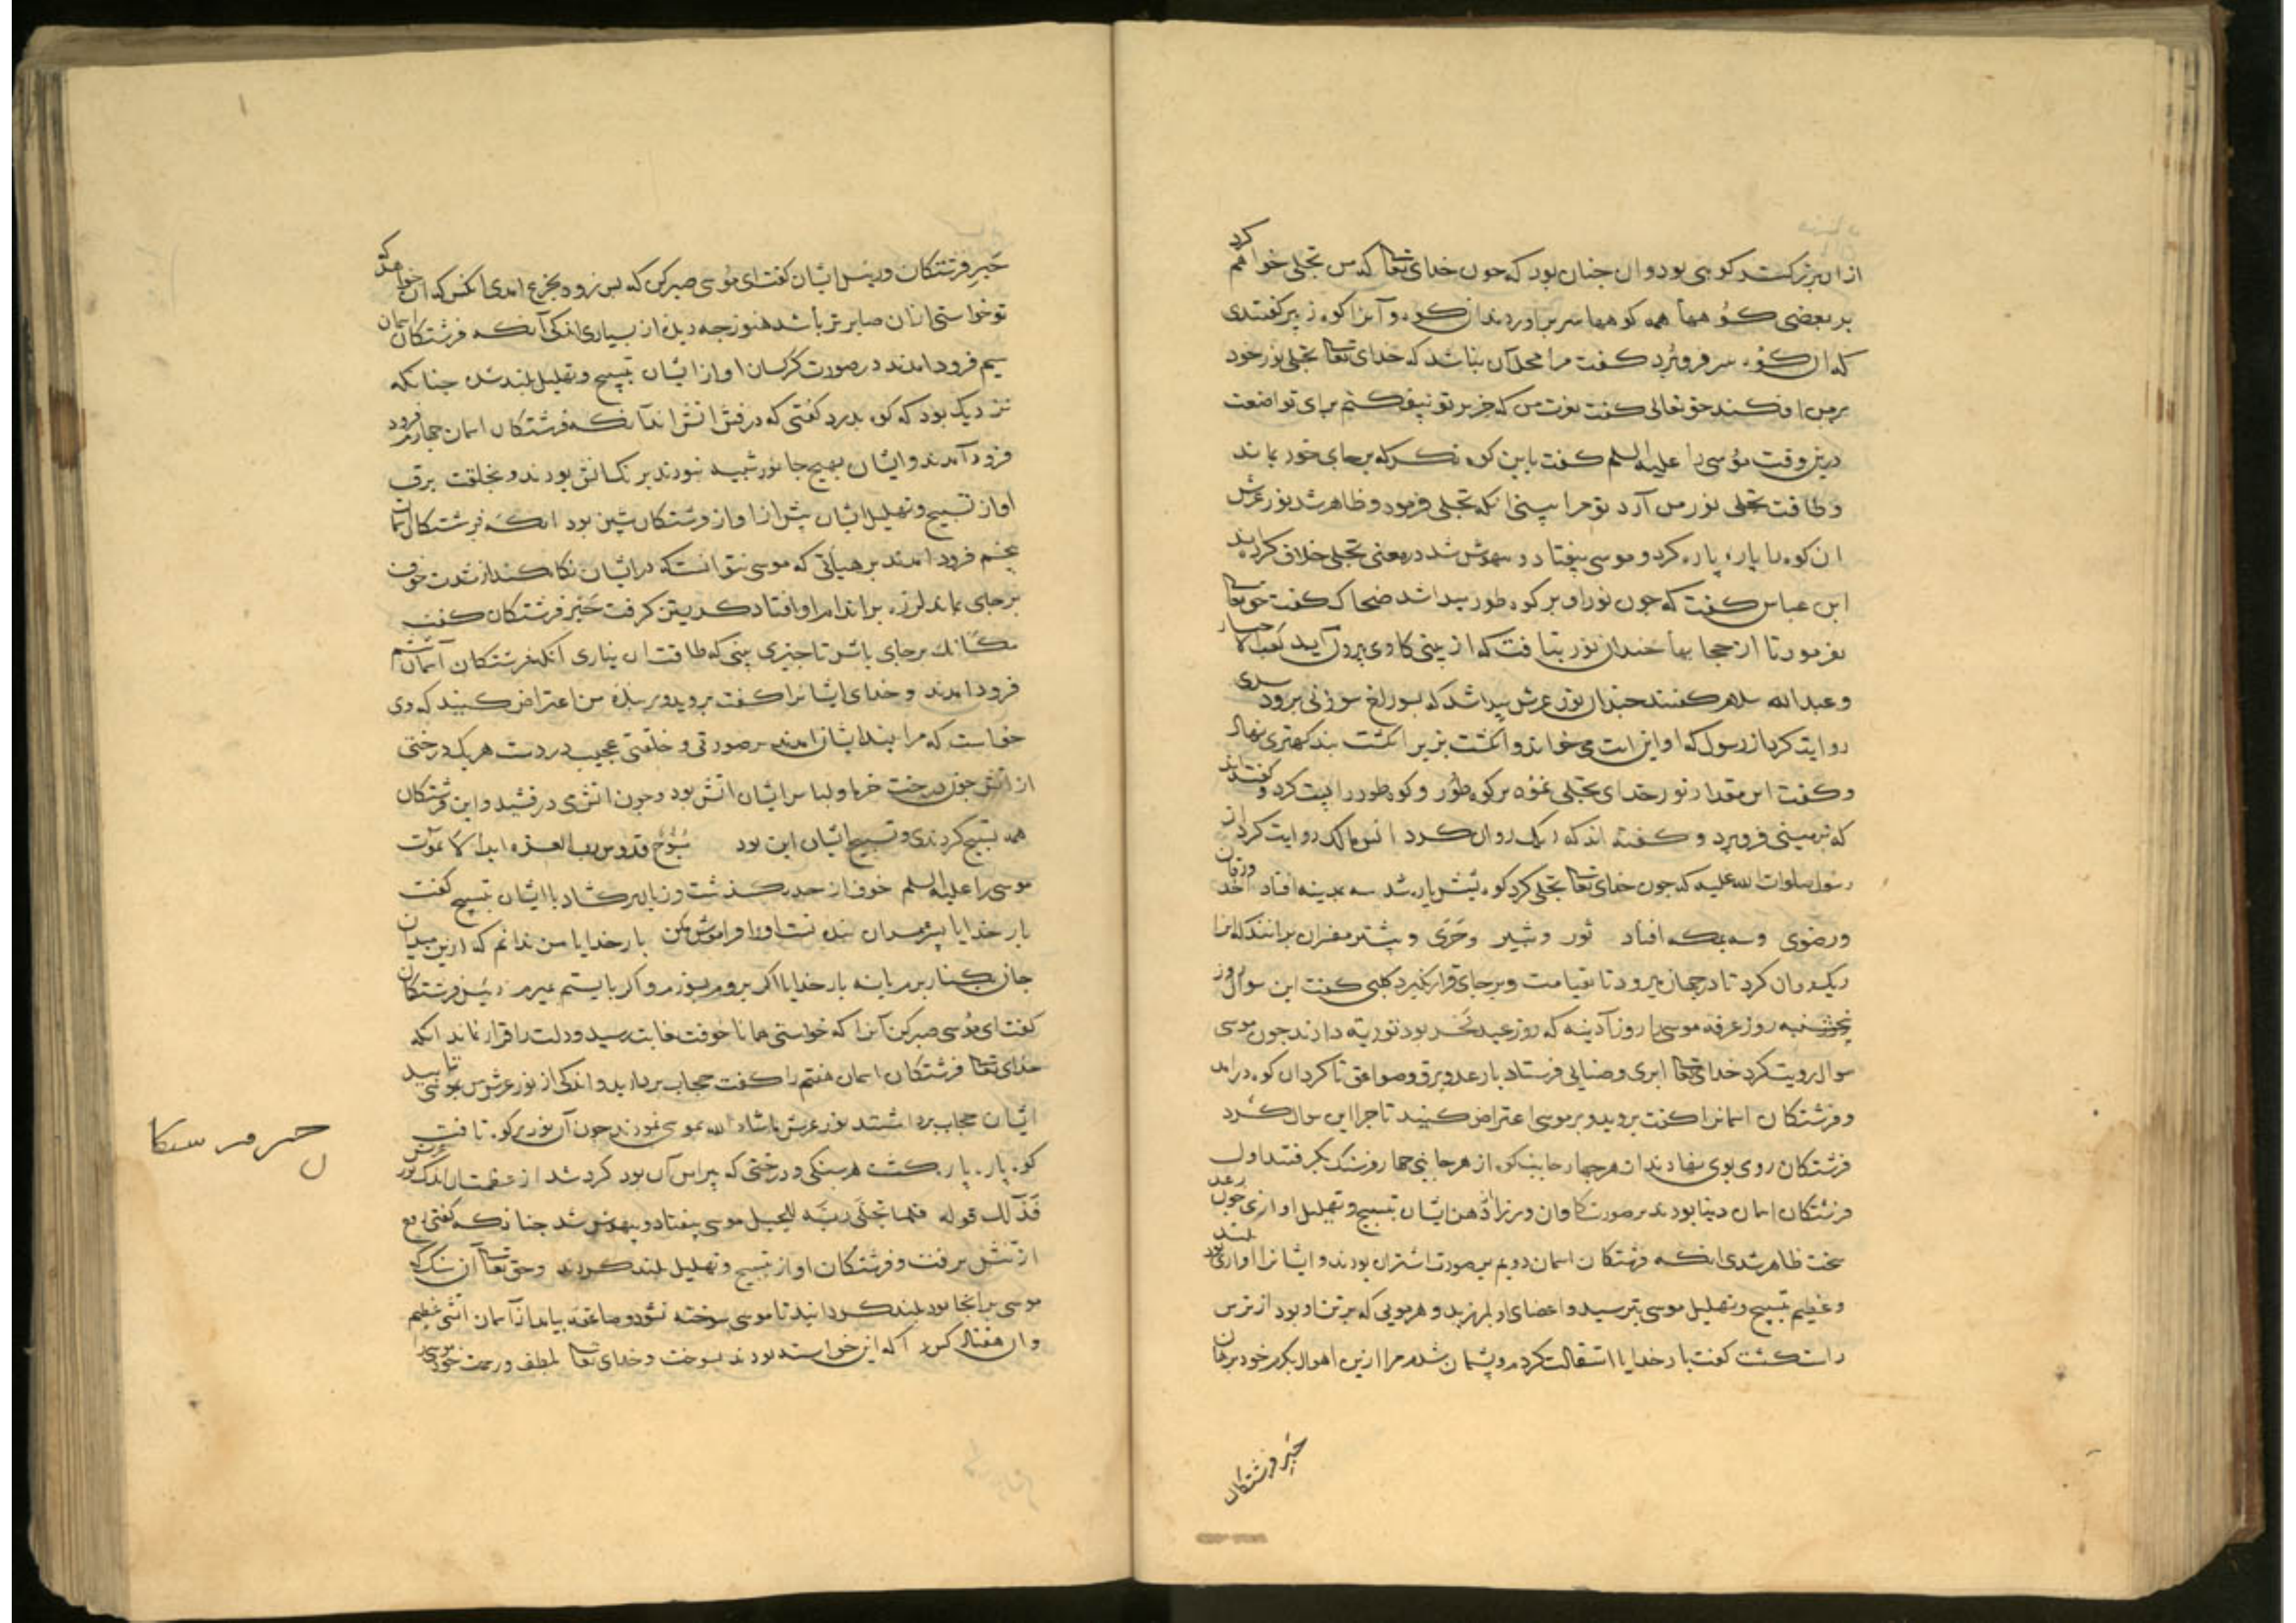 از ان بزرگتر کوهی بود وان جنان بود که جون خدای تعالی گفت من تجلی خواهم کرد
بر بعضی کوهها همه کوهها سر براوردند ان کوه و آنرا کوه زبیر گفتندی
که ان کوه سر فرو برد گفت مرا محل آن نباشد که خدای تعالی تجلی نور خود
بر من افکند حق تعالی گفت بعزت من که جز بر تو نیفکنم برای تواضعت
درین وقت موسی را علیه السلم گفت باین کوه نگر که بر جای خود بماند
و طاقت تجلی نور من آرد تو مرا ببینی انکه تجلی فرمود و ظاهر شد نور عرش
ان کوه را پاره پاره کرد و موسی بیفتاد و بیهوش شد در معنی تجلی خلاف کرده اند
ابن عباس گفت که جون نور او بر کوه طور پیدا شد ضحاک گفت حق تعالی
بفرمود تا از حجابها جندان نور بتافت که از بینی کاوی بیرون آید کعب الاحبار
و عبدالله سلام گفتند جندان نور عرش پیدا شد که بسوراخ سوزنی برود سدی
روایت کرد از رسول که او این ایت می خواند و انکشت بزیر انکشت بند کهتری نهاد
و گفت این مقدار نور خدای تجلی نمود بر کوه طور و کوه طور را پست کرد و گفته اند
که بزمینی فرو برد و گفته اند که ریک روان کرد انس مالک روایت کرد از
رسول صلوات الله علیه که جون خدای تعالی تجلی کرد کوه بشش پاره شد سه بمدینه افتاد احد ورقان
ورضوی وسه بمکه افتاد ثور وثبیر وحری و بیشتر مفسران برانند که انرا
ریک روان کرد تا در جهان میرود تا بقیامت و بر جای قرار نکیرد کلبی گفت این سوال روز
پنجشنبه روز عرفه موسی را روز آدینه که روز عید نحر بود توریة دادند جون موسی
سوال رویت کرد خدای تعالی ابری و ضبابی فرستاد با رعد و برق و صواعق تا کرد ان کوه درامد
و فرشتکان اسمانرا گفت بروید و بر موسی اعتراض کنید تا جرا این سوال کرد
فرشتکان روی بوی نهادند از هر جهار جانب کوه از هر جانبی جهار فرسنک بکرفتند اول
فرشتکان اسمان دنیا بودند بر صورت کاوان و بر زار دهن ایشان تسبیح و تهلیل اوازی جون رعد
سخت ظاهر شدی انکه فرشتکان اسمان دویم بر صورت اشتران بودند و ایشانرا اوازی بود بلند
و عظیم تسبیح و تهلیل موسی بترسید و اعضای او بلرزید و هر مویی که بر تن او بود از ترس
راست گشت گفت بار خدایا استقالت کردم و پشیمان شدم مرا ازین اهوال بکرم خود برهان
خبر فرشتکان
خبر فرشتکان و رییس ایشان گفت ای موسی صبر کن که بس زود بجزع امدی انکس که ان خواهد که
تو خواستی ازان صابر تر باشد هنوز جه دیدۀ از بسیاری اندکی آنکه فرشتکان اسمان
سیم فرود امدند در صورت کرکسان اواز ایشان بتسبیح و تهلیل بلند شد جنانکه
نزدیک بود که کوه بدرد گفتی که درفش اتش اند آنکه فرشتکان اسمان جهارم فرود
فرود آمدند و ایشان بهیج جانور شبیه نبودند بر نک اتش بودند و بخلقت برف
اواز تسبیح و تهلیل ایشان بیش از اواز فرشتکان پیشین بود انکه فرشتکان اسمان
پنجم فرود امدند بر هیأتی که موسی نتوانست که در ایشان نکاه کند از شدت خوف
بر جای بماند لرزه بر اندام او افتاد گریستن کرفت خبر فرشتکان گفت
مکانک بر جای باش تا جیزی بینی که طاقت ان نیاری انکه فرشتکان آسمان ششم
فرود امدند و خدای ایشانرا گفت بروید و بر بندۀ من اعتراض کنید که وی
خواست که مرا بیند ایشان امدند بر صورتی و خلقتی عجیب در دست هر یک درختی
از اتش جون درخت خرما و لباس ایشان اتش بود و جون اتش می درفشید و این فرشتکان
همه تسبیح کردندی و تسبیح ایشان این بود سُبُّوحٌ قدوس رب العزه ابدا لا یموت
موسی را علیه السلم خوف از حد بگذشت و زبان برکشاد با ایشان تسبیح گفت
بار خدایا پسر عمران بنده تست او را فراموش مکن بار خدایا من ندانم که ازین میان
جان بکنار برم یا نه بار خدایا اکر بروم بسوزم و اکر بایستم بمیرم رییس فرشتکان
گفت ای موسی صبر کن آنرا که خواستی همانا خوفت بغایت رسید و دلت را قرار نماند انکه
خدای تعالی فرشتکان اسمان هفتم را گفت حجاب بردارید و اندکی از نور عرش من بموسی نمایید
ایشان حجاب برداشتند نور عرش ماشاء الله بموسی نمودند جون آن نور بر کوه تافت
کوه پاره پاره گشت هر سنکی و درختی که پیرامن آن بود کرد شد از عظمت ان اندک نور عرش
فذلک قوله فلما تجلّی ربّه للجبل موسی بیفتاد و بیهوش شد جنانکه گفتی روح
از تنش برفت و فرشتکان اواز بتسبیح و تهلیل بلند کردند و حق تعالی آن سنک که
موسی بر انجا بود بلند کردانید تا موسی سوخته نشود و صاعقه بیامد از آسمان اتشی عظیم
وان هفتاد کس را که این خواسته بودند بسوخت و خدای تعالی بلطف و رحمت خود موسی را